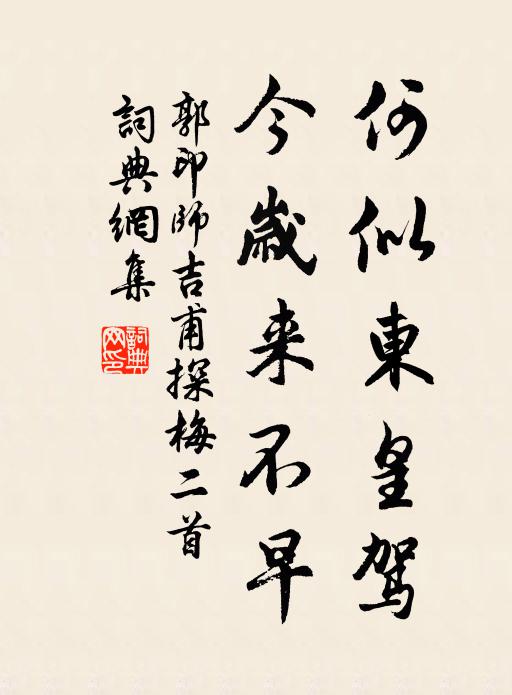 何似東皇駕
今歲来不早
郭印師吉甫探梅二首
詞典網集
詞典网印